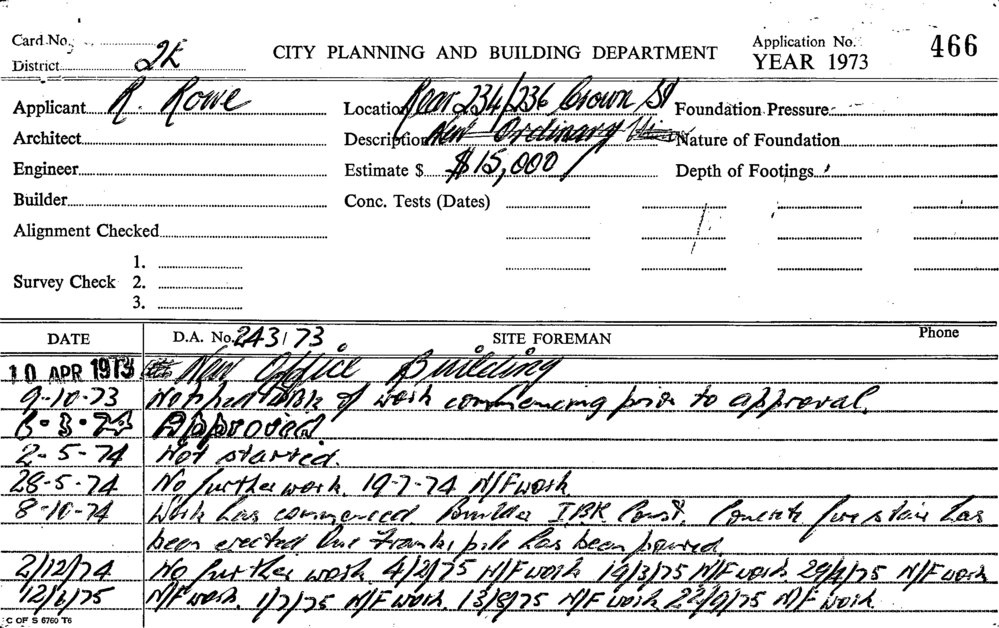 Card No.
District 2E
CITY PLANNING AND BUILDING DEPARTMENT
Application No. 466
YEAR 1973
Applicant R. Rowe
Location Rear 234/236 Crown St
Foundation Pressure
Architect
Description New Ordinary
Nature of Foundation
Engineer
Estimate $ $15,000
Depth of Footings
Builder
Conc. Tests (Dates)
Alignment Checked
Survey Check 1.
2.
3.
DATE D.A. No. 243/73 SITE FOREMAN Phone
10 APR 1973 New Office Building
9-10-73 Notified of work commencing prior to approval.
Approved
2-5-74 Not started.
28-5-74 No further work. 19-7-74 N/F work
8-10-74 Work has commenced. Builder Const. Concrete fire stair has
been erected One Franki pile has been poured.
2/12/74 No further work. 4/2/75 N/F work 19/3/75 N/F work. 29/4/75 N/F work
12/6/75 N/F work. 1/7/75 N/F work. 13/8/75 N/F work 22/9/75 N/F work.
C OF S 6760 T6